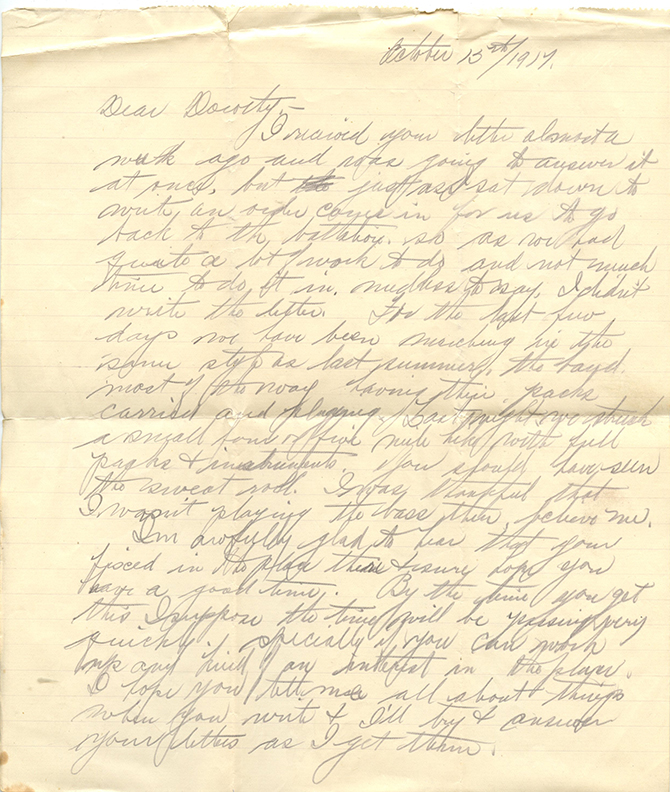 October 15th/1917.
Dear Dorothy,-
I received your letter almost a
week ago and was going to answer it
at once, but just as I sat down to
write, an order comes in for us to go
back to the battalion. so as we had
quite a lot work to do and not much
time to do it in. needless to say, I didn't
write the letter. For the last few
days we have been marching in the
same style as last summer, the band
most of the way having their packs
carried and playing. Last night we
a small four or five mile hike with full
packs & instruments. You should have seen
the sweat roll. I was thankful that
I wasn't playing the bass then, believe me.
I'm awfully glad to hear that your
fixed in the place & sure hope you
have a good time. By the time you get
this I suppose the time will be passing very
quickly. specially if you can work
up any kind of an interest in the place.
I hope you tell me all about things
when you write & I'll try & answer
your letters as I get them.